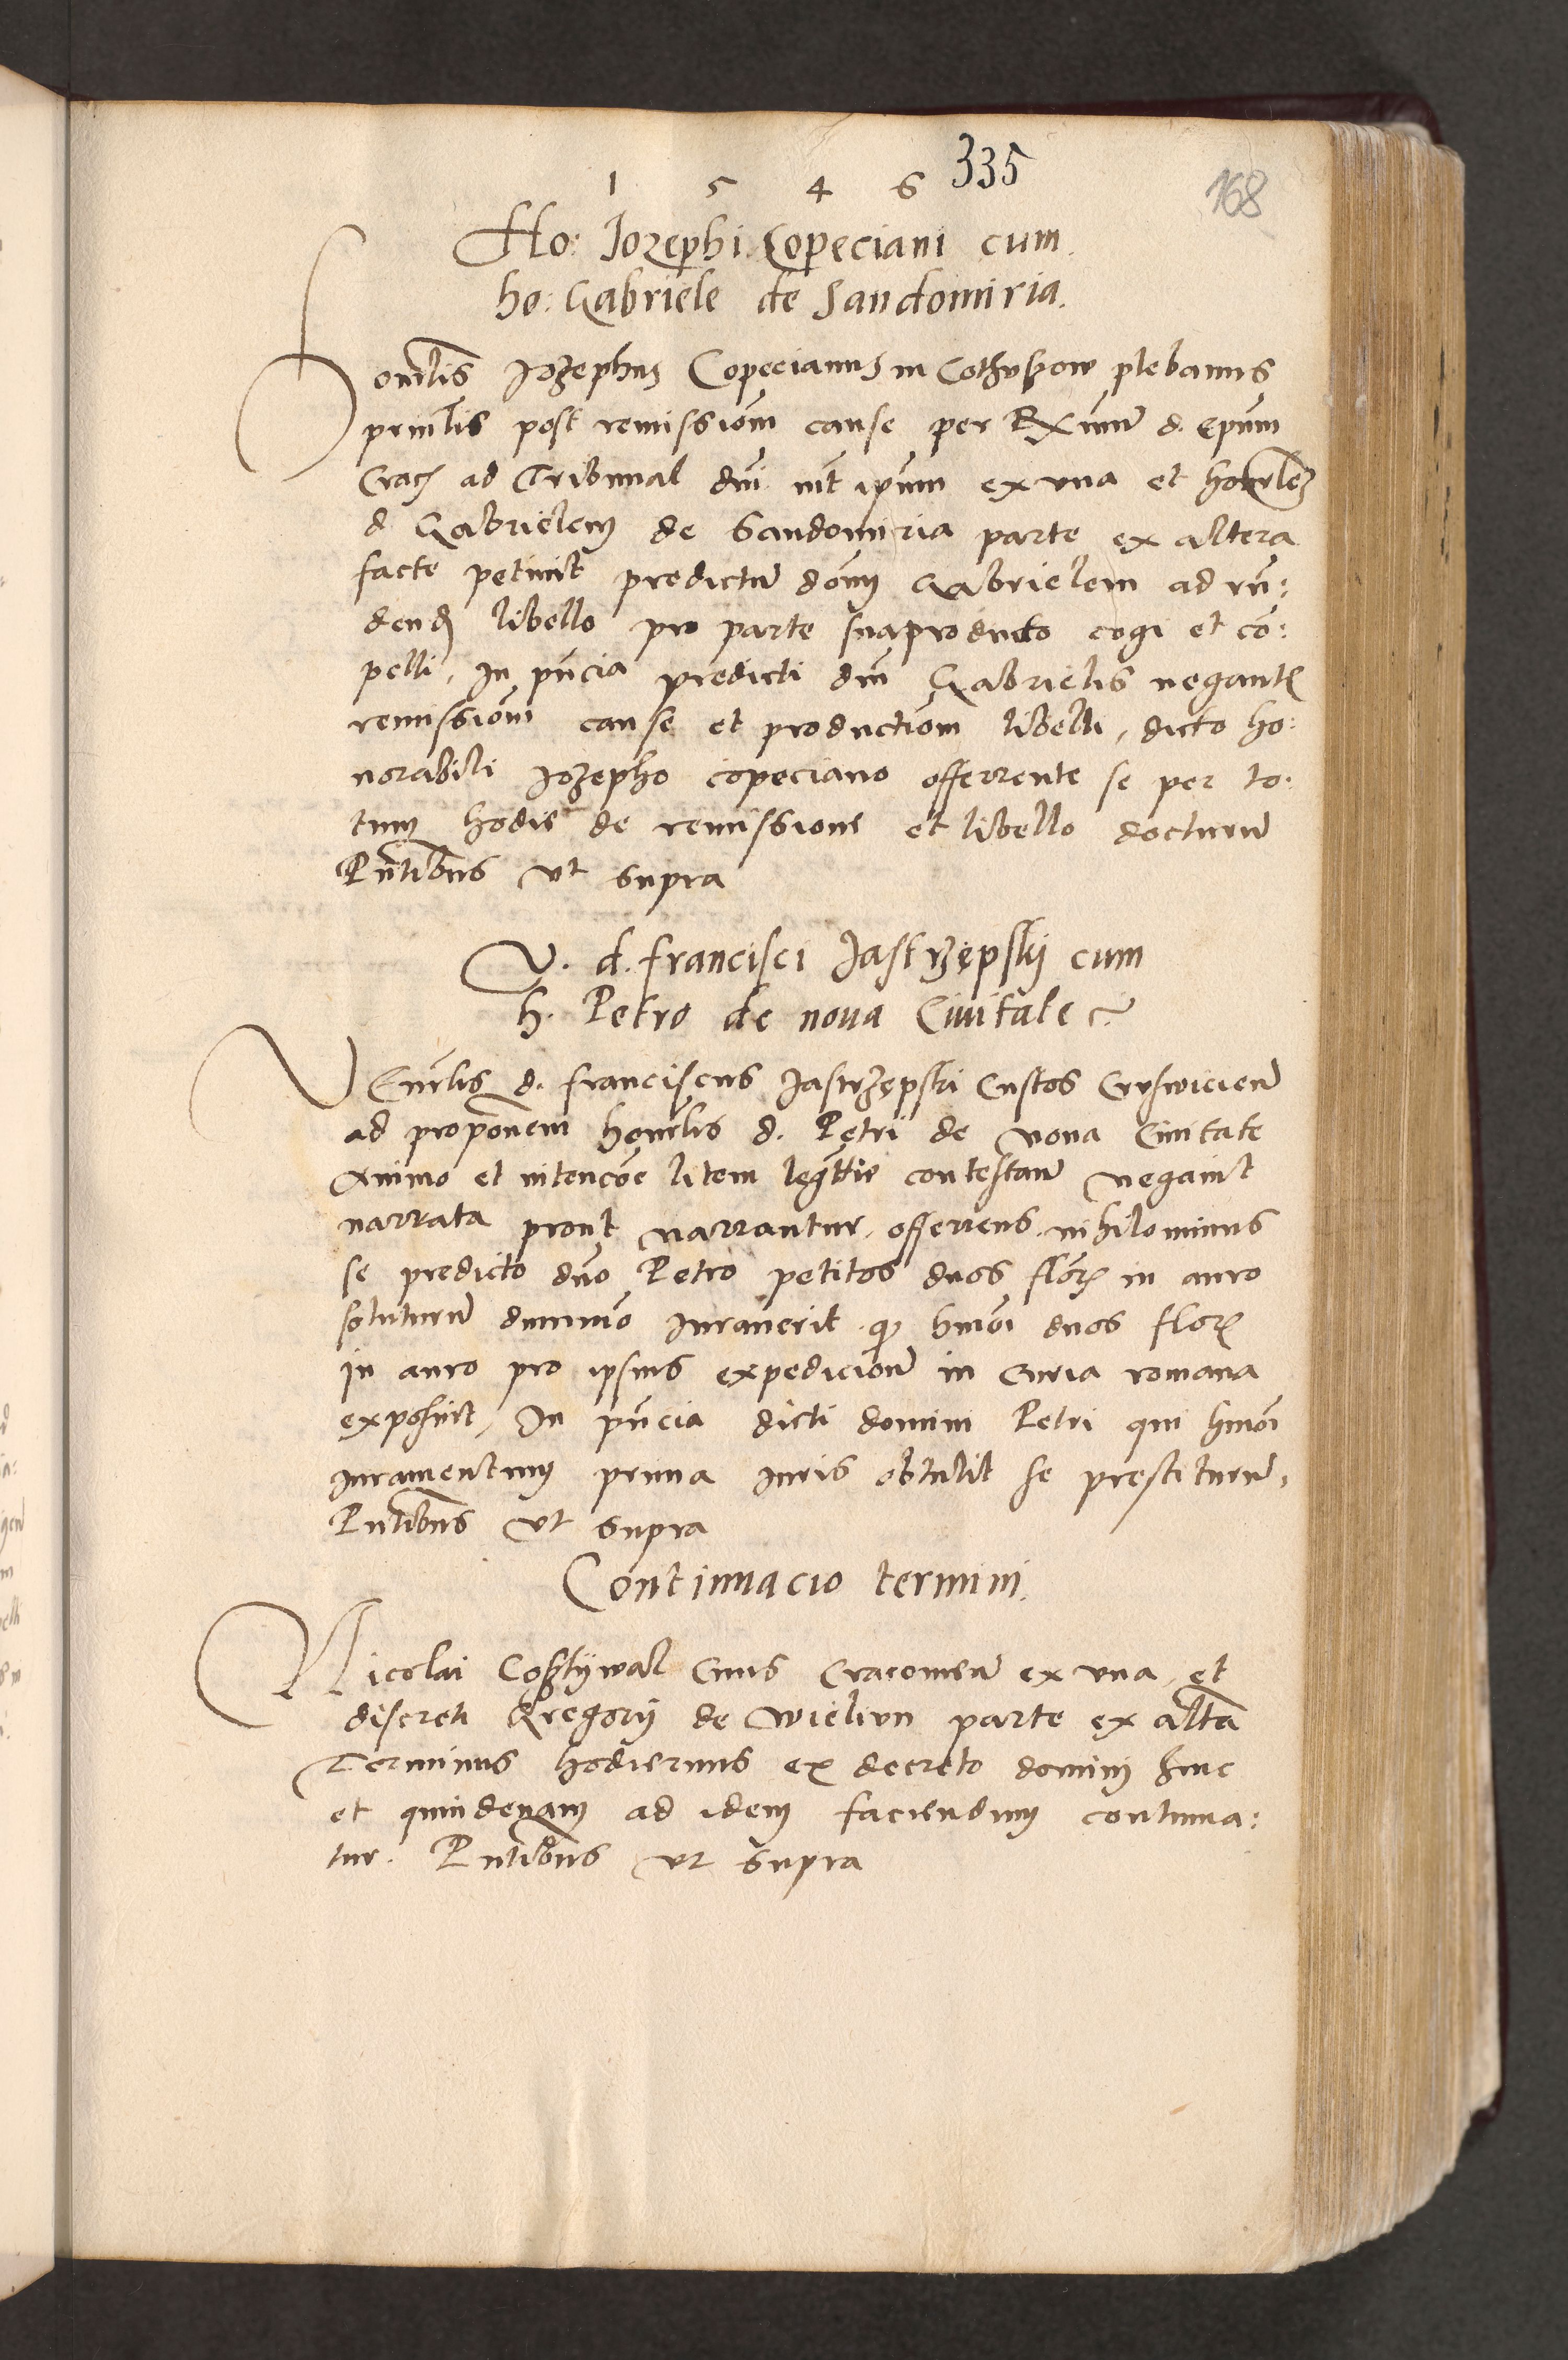 1 5 4 6 335
168
Ho: Jozephi Copeciani cum
ho: Gabriele de Sandomiria.
Honorlis Jozephus Copecianus in Cothuszow plebanus
prinlis post remissiom cause per Rxmum d. Epum
Crac ad Tribunal dni int ipum ex una et honrlem
d Gabrielem de Sandomiria parte ex altera
facte petiuit predictum donm Gabrielem ad rn:
dend libello pro parte sua producto cogi et co:
pelli, In pncia predicti dni Gabrielis negante
remissiom cause et productiom libelli, dicto ho:
norabili Jozepho copeciano offerrente se per to:
tum hodie de remissione et libello docturum
Pntibus vt supra
V. d. francisci Jastrzępskj cum
h. Petro de noua Ciuitate
VEnrlis d. franciscus Jastrzępski Custos Cruswicien
ad proponem honrlis d. Petri de noua Ciuitate
animo et intencoe litem legttie contestan negauit
narrata prout narrantur, offeriens nihilominus
se predicto dno Petro petitos duos flor in auro
soluturum dummo Iurauerit q hmoi duos flor
in auro pro ipsius expedicione in Curia romana
exposuit, In pncia dicti domini Petri qui hmoi
iuramentum prima iuris obtulit se prestiturum,
Pntibus vt supra
Continuacio termini.
Nicolai Cosztywal Ciuis Cracouien ex vna, et
discreti Gregorij de Wielun parte ex altra
Terminus hodiernus ex decreto domini hinc
et quindenam ad idem faciendum continua:
tur. Pntibus vt supra